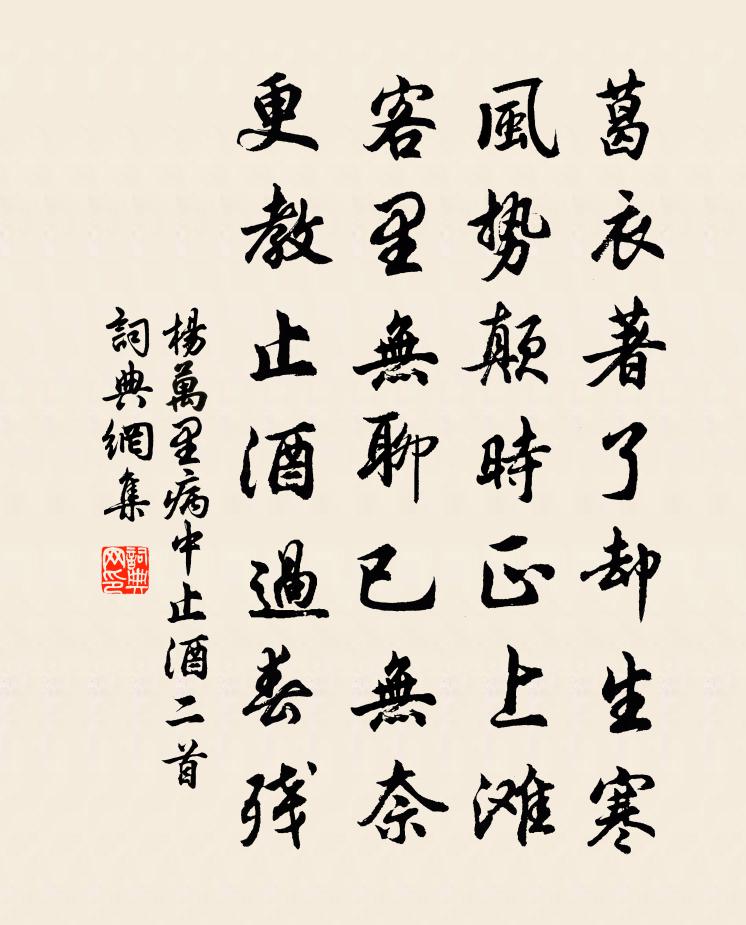 葛衣著了却生寒
風势颠時正上滩
客里無聊已無奈
更教止酒過春残
楊萬里病中止酒二首
詞典網集
詞典网印